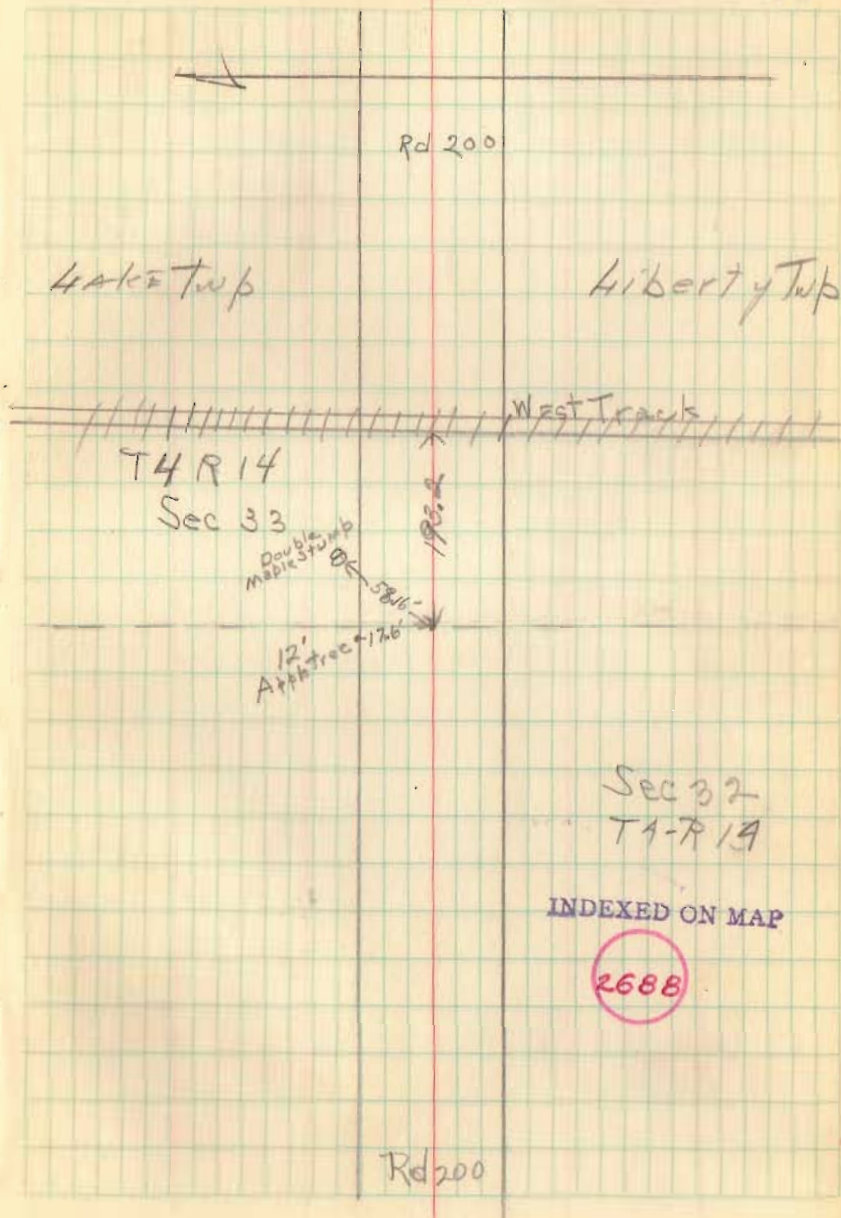 Rd 200
Lake Twp
Liberty Twp
West Track
T4 R 14
Sec 33
193.2
Double
Maple Stump
58.16'
12'
Apple tree 17.6'
Sec 32
T4-R14
INDEXED ON MAP
2688
Rd 200